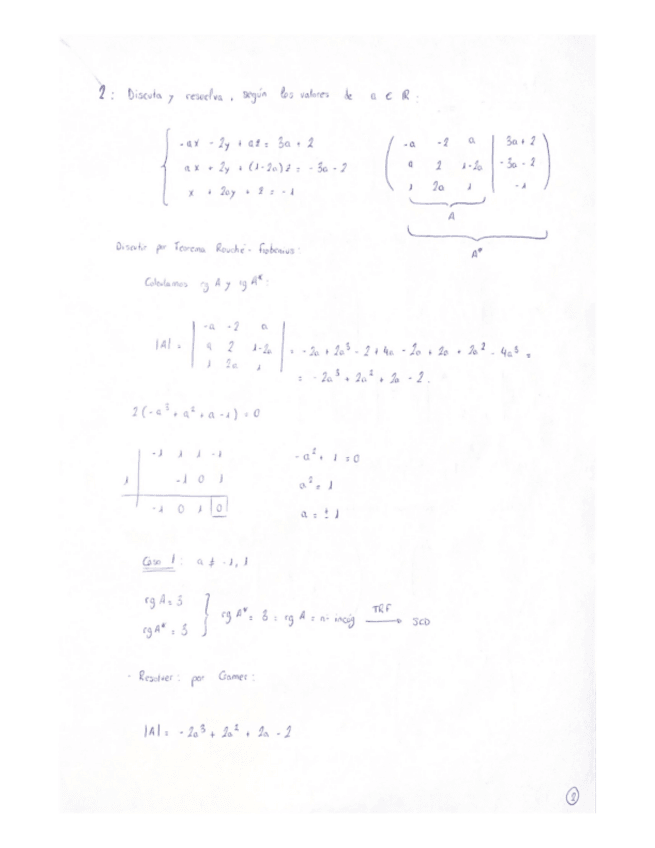 2: Discuta y resuelva, según los valores de a ∈ R:
{ -ax - 2y + az = 3a + 2
ax + 2y + (1-2a)z = -3a - 2
x + 2ay + z = -1
( -a -2 a | 3a+2
a 2 1-2a | -3a-2
1 2a 1 | -1 )
A
A*
Discutir por Teorema Rouché - Frobenius:
Calculamos rg A y rg A*:
|A| = | -a -2 a
a 2 1-2a
1 2a 1 | = -2a + 2a³ - 2 + 4a - 2a + 2a + 2a² - 4a³ =
= -2a³ + 2a² + 2a - 2.
2(-a³ + a² + a - 1) = 0
-1 1 1 -1
1 | -1 0 1
-1 0 1 |0|
-a² + 1 = 0
a² = 1
a = ± 1
Caso 1: a ≠ -1, 1
rg A = 3
rg A* = 3
} rg A* = 3 = rg A = nº incóg TRF → SCD
- Resolver: por Cramer:
|A| = -2a³ + 2a² + 2a - 2
2